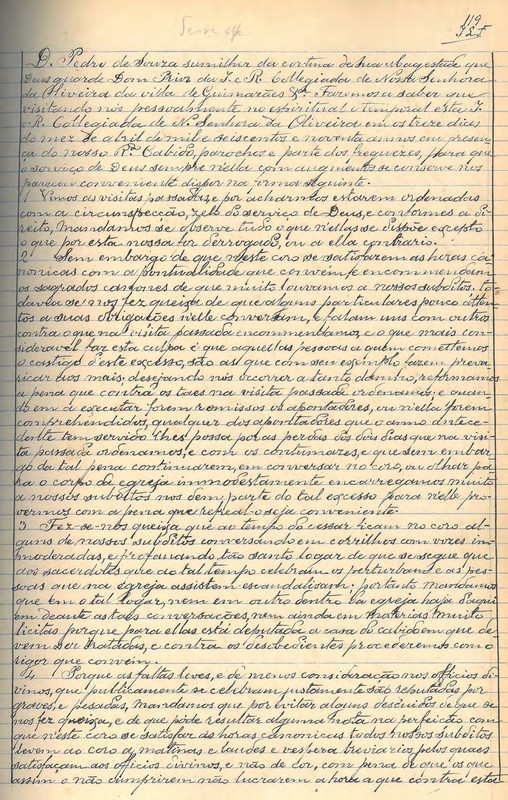 Sem
119
D. Pedro de Souza sumilher da cortina de Sua Magestade que
Deus guarde Dom Prior da I. e R. Collegiada de Nossa Senhora
da Oliveira da villa de Guimarães &ª. Faremos a saber que
visitando nós pessoalmente no espiritual e temporal esta I.
e R. Collegiada de N. Senhora da Oliveira em os treze dias
do mez de abril de mil e seiscentos e noventa annos em presen-
ça do nosso R.do Cabido, parochos e parte dos freguezes, para que
o serviço de Deus sempre nella com augmento se conserve nos
pareceu conveniente dispor na forma seguinte.
1 Vimos as visitas passadas, e por acharmos estarem ordenadas
com a circunspecção, zelo do serviço de Deus, e conformes a di-
reito, mandamos se observe tudo o que n'ellas se dispõe excepto
o que por esta nossa for derrogado, ou a ella contrario.
2 Sem embargo de que n'este coro se satisfazem as horas ca-
nonicas com a pontualidade que convem, e encommendam
os sagrados canones de que muito louvamos a nossos subditos to-
davia se nos fez queixa de que alguns particulares pouco atten-
tos a suas obrigações n'elle conversam, e falam uns com outros
contra o que na visita passada encommendamos, e o que mais con-
sideravel faz esta culpa é que aquellas pessoas a quem comettemos
o castigo d'este excesso, são as que com seu exemplo fazem preva-
ricar aos mais; desejando nós occorrer a tanto damno, reformamos
a pena que contra os taes na visita passada ordenamos, e quan-
do em a executar forem remissos os apontadores, ou n'ella forem
comprehendidos, qualquer dos apontadores que o anno antece-
dente tem servido lhes possa pôr as perdas dos dois dias que na visi-
ta passada ordenamos, e com os contumazes, e que sem embar-
go da tal pena continuarem, em conversar no coro, ou olhar pa-
ra o corpo da egreja immodestamente encarregamos muito
a nossos subditos nos dem parte do tal excesso para n'elle pro-
vermos com a pena que real-o seja conveniente.
3 Fez-se-nos queixa que ao tempo de cessar ficam no coro al-
guns de nossos subditos conversando em corrilhos com vozes im-
moderadas, e profanando tão santo logar de que se segue que
aos sacerdotes que ao tal tempo celebram os perturbam e as pes-
soas que na egreja assistem escandalisam: portanto mandamos
que em o tal logar, nem em outro dentro da egreja haja d'aqui
em deante as taes conversações, nem ainda em materias muito
licitas porque para ellas está deputada a casa do cabido em que de-
vem ser tratadas, e contra os desobedientes procederemos com o
rigor que convem.
4 Porque as faltas leves, e de menos consideração nos officios di-
vinos, que publicamente se celebram justamente são reputadas por
graves, e pesadas, mandamos que por evitar alguns descuidos de que se
nos fez queixa, e de que póde resultar alguma nota na perfeição com
que n'este coro se satisfaz as horas canonicas todos nossos subditos
levem ao coro a matinas e laudes e vespera breviarios pelos quaes
satisfaçam aos officios divinos, e não de cor, com pena de que os que
assim o não cumprirem não lucrarem a hora a que contra esta